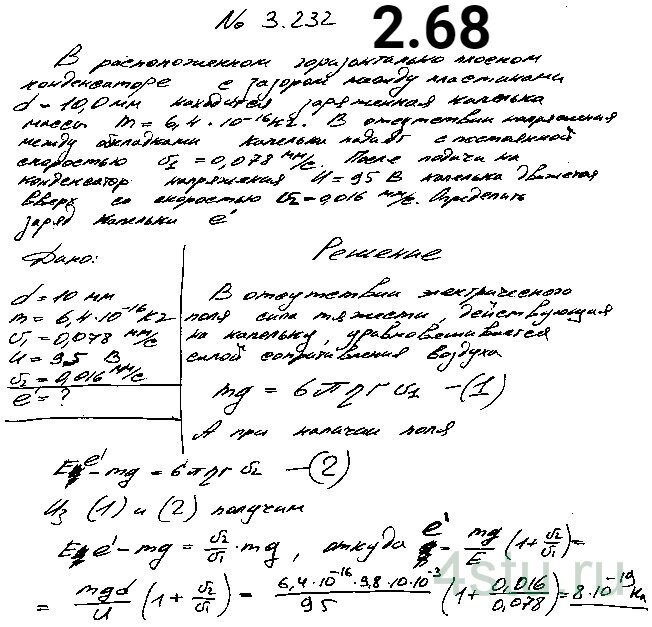 № 3.232
2.68
В расположенном горизонтально плоском
конденсаторе с зазором между пластинами
d = 10,0 мм находится заряженная капелька
массы m = 6,4·10⁻¹⁶ кг. В отсутствии напряжения
между обкладками капелька падает с постоянной
скоростью υ₁ = 0,078 мм/с. После подачи на
конденсатор напряжения U = 95 В капелька движется
вверх со скоростью υ₂ = 0,016 мм/с. Определить
заряд капельки e'
Дано:
d = 10 мм
m = 6,4·10⁻¹⁶ кг
υ₁ = 0,078 мм/с
U = 95 В
υ₂ = 0,016 мм/с
e' = ?
Решение
В отсутствии электрического
поля сила тяжести, действующая
на капельку, уравновешивается
силой сопротивления воздуха
mg = 6πηr υ₁ – (1)
А при наличии поля
Ee' – mg = 6πηr υ₂ – (2)
Из (1) и (2) получим
E e' – mg = υ₂/υ₁ · mg, откуда e' = mg/E (1 + υ₂/υ₁) =
= mgd/U (1 + υ₂/υ₁) = 6,4·10⁻¹⁶·9,8·10·10⁻³/95 (1 + 0,016/0,078) = 8·10⁻¹⁹ Кл
4stu.ru